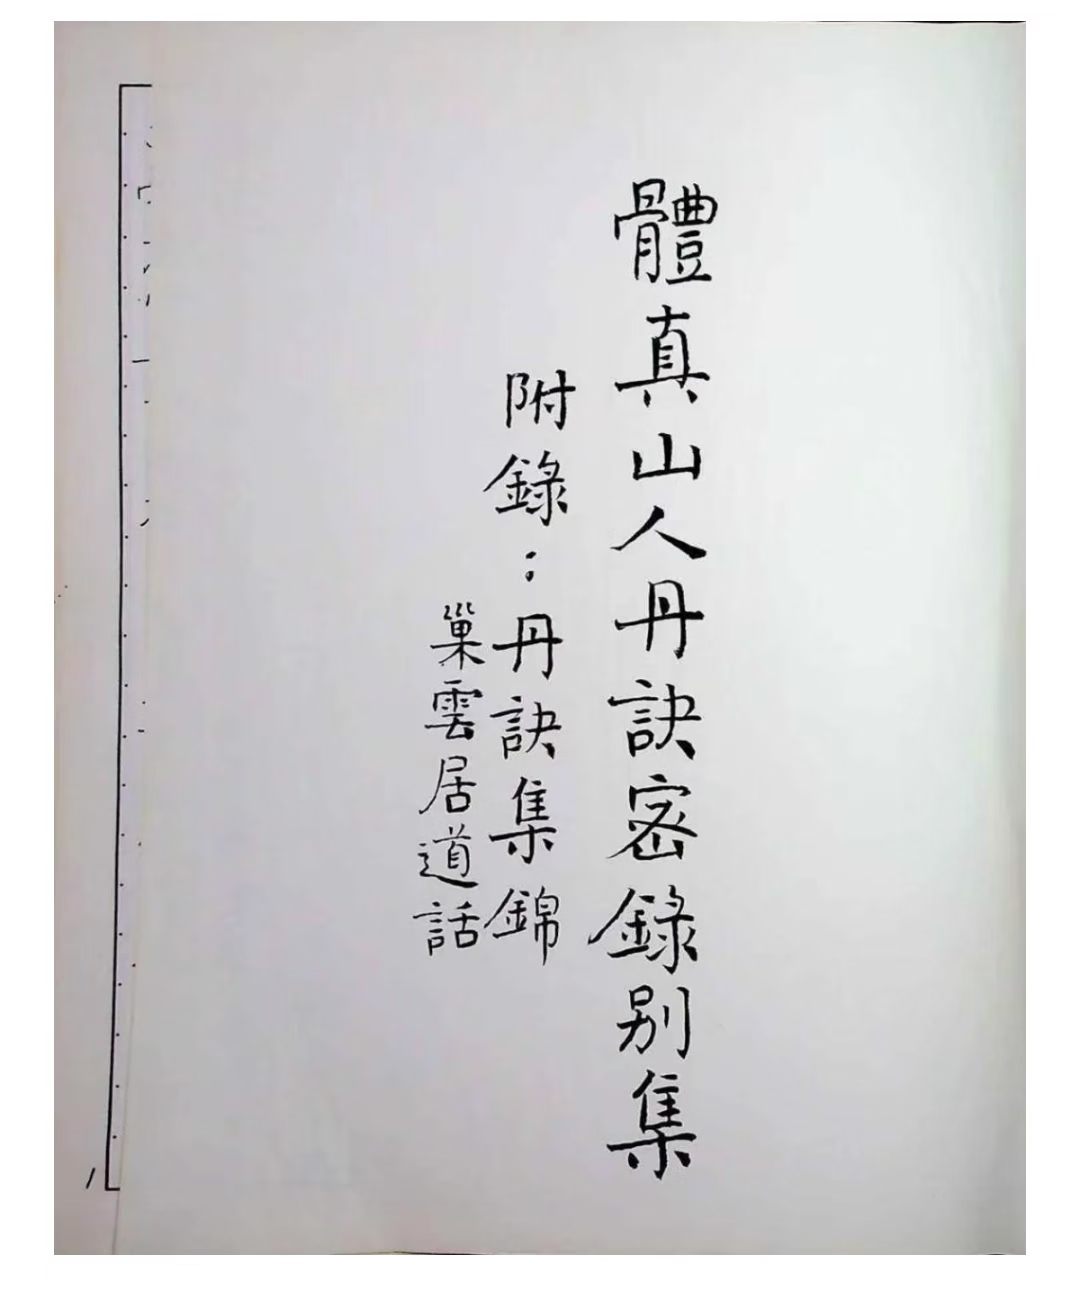 體真山人丹訣密錄别集
附錄：丹訣集錦
巢雲居道話